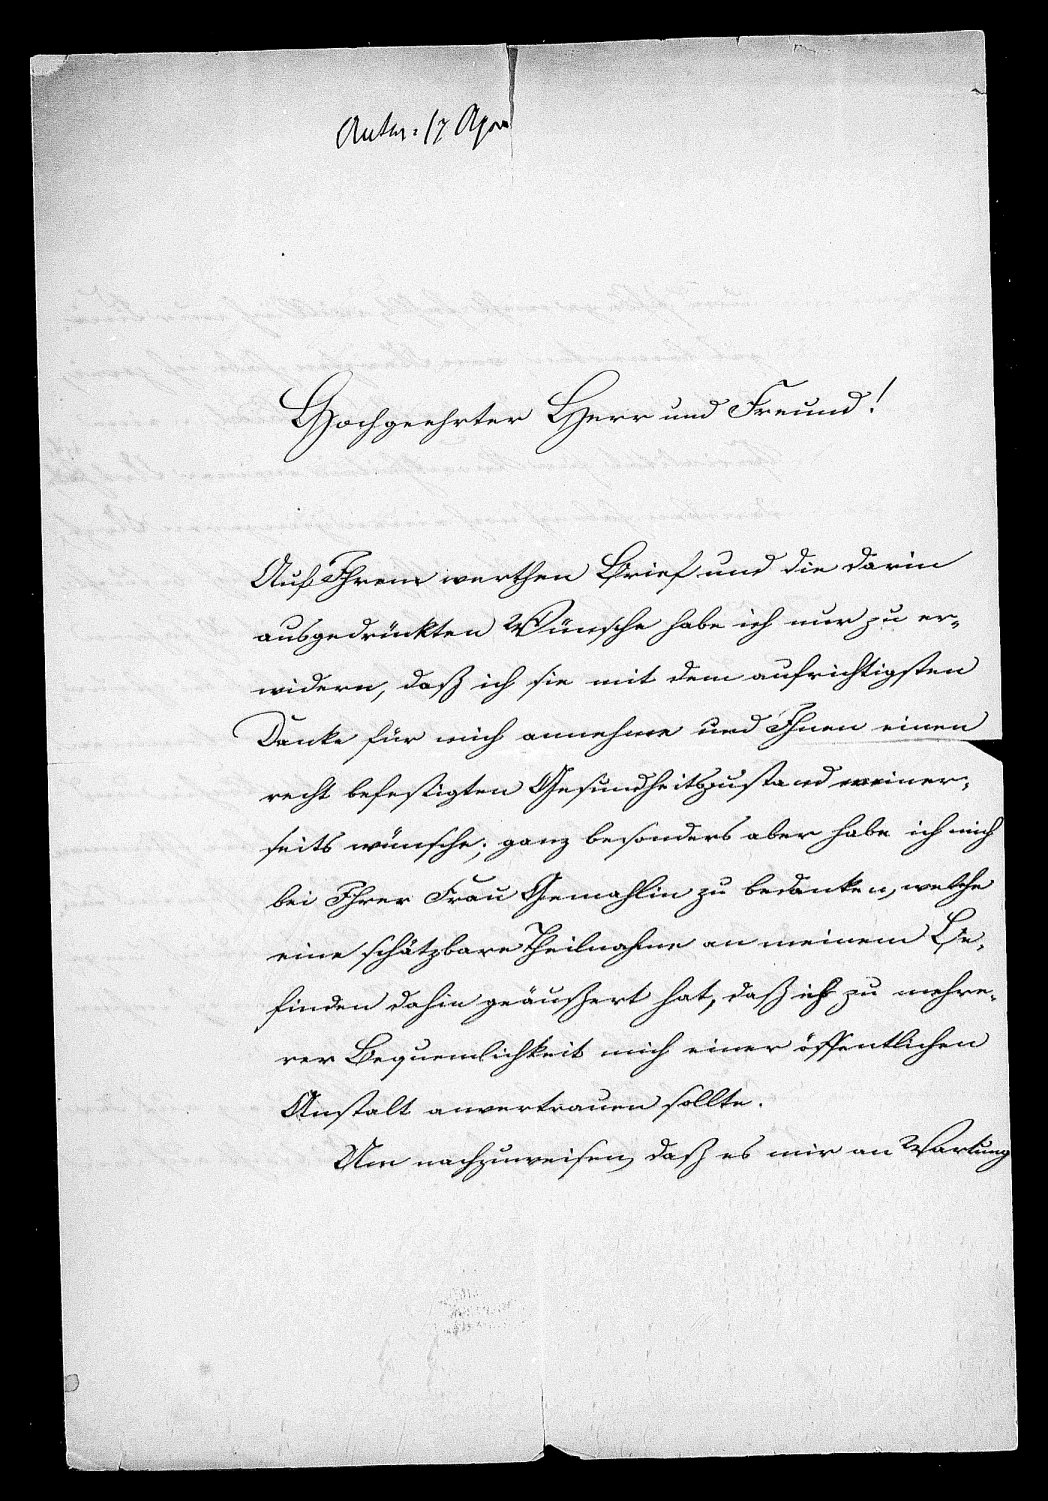 Antw. 17 Apr
Hochgeehrter Herr und Freund!
Auf Ihren werthen Brief und die darin
ausgedrückten Wünsche habe ich nur zu er-
widern, daß ich sie mit dem aufrichtigsten
Danke für mich annehme und Ihnen einen
recht befestigten Gesundheitszustand meiner-
seits wünsche; ganz besonders aber habe ich mich
bei Ihrer Frau Gemahlin zu bedanken, welche
eine schätzbare Theilnahme an meinem Be-
finden dahin geäußert hat, daß ich zu mehre-
rer Bequemlichkeit mich einer öffentlichen
Anstalt anvertrauen sollte.
Um nachzuweisen, daß es mir an Wartung